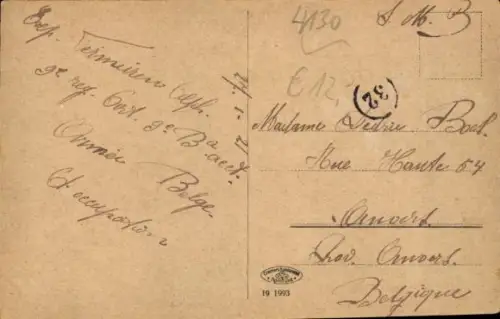 Exp. Vermeiren Alph.
9e reg. Art. 9e Ba
Armée Belge
d'occupation
4130
S. M. B
€12,
32
Madame Desiré Boel
Rue Haute 54
Anvers
Prov. Anvers.
Belgique
19 1993